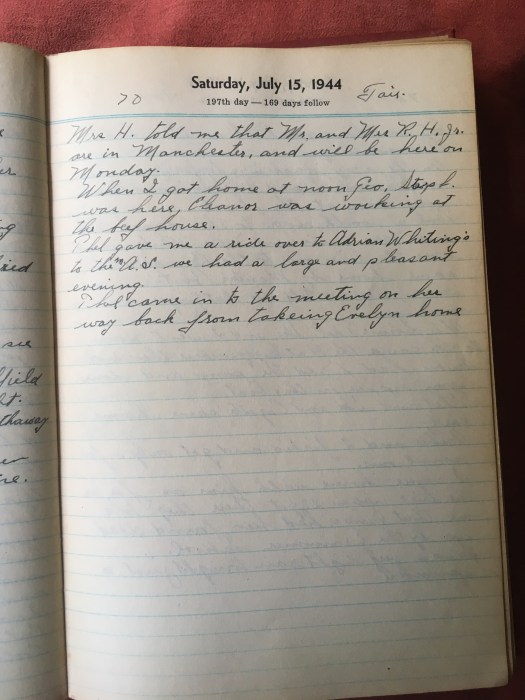 er
ng
aid
see
field
st.
thaway
er
re.
Saturday, July 15, 1944
197th day — 169 days follow
70
Fair.
Mrs H. told me that Mr. and Mrs R. H. Jr.
are in Manchester, and will be here on
Monday.
When I got home at noon Geo. Steph.
was here, Eleanor was working at
the beef house.
Phil gave me a ride over to Adrian Whiting's
to the A.S. we had a large and pleasant
evening.
Phil came in to the meeting on her
way back from takeing Evelyn home